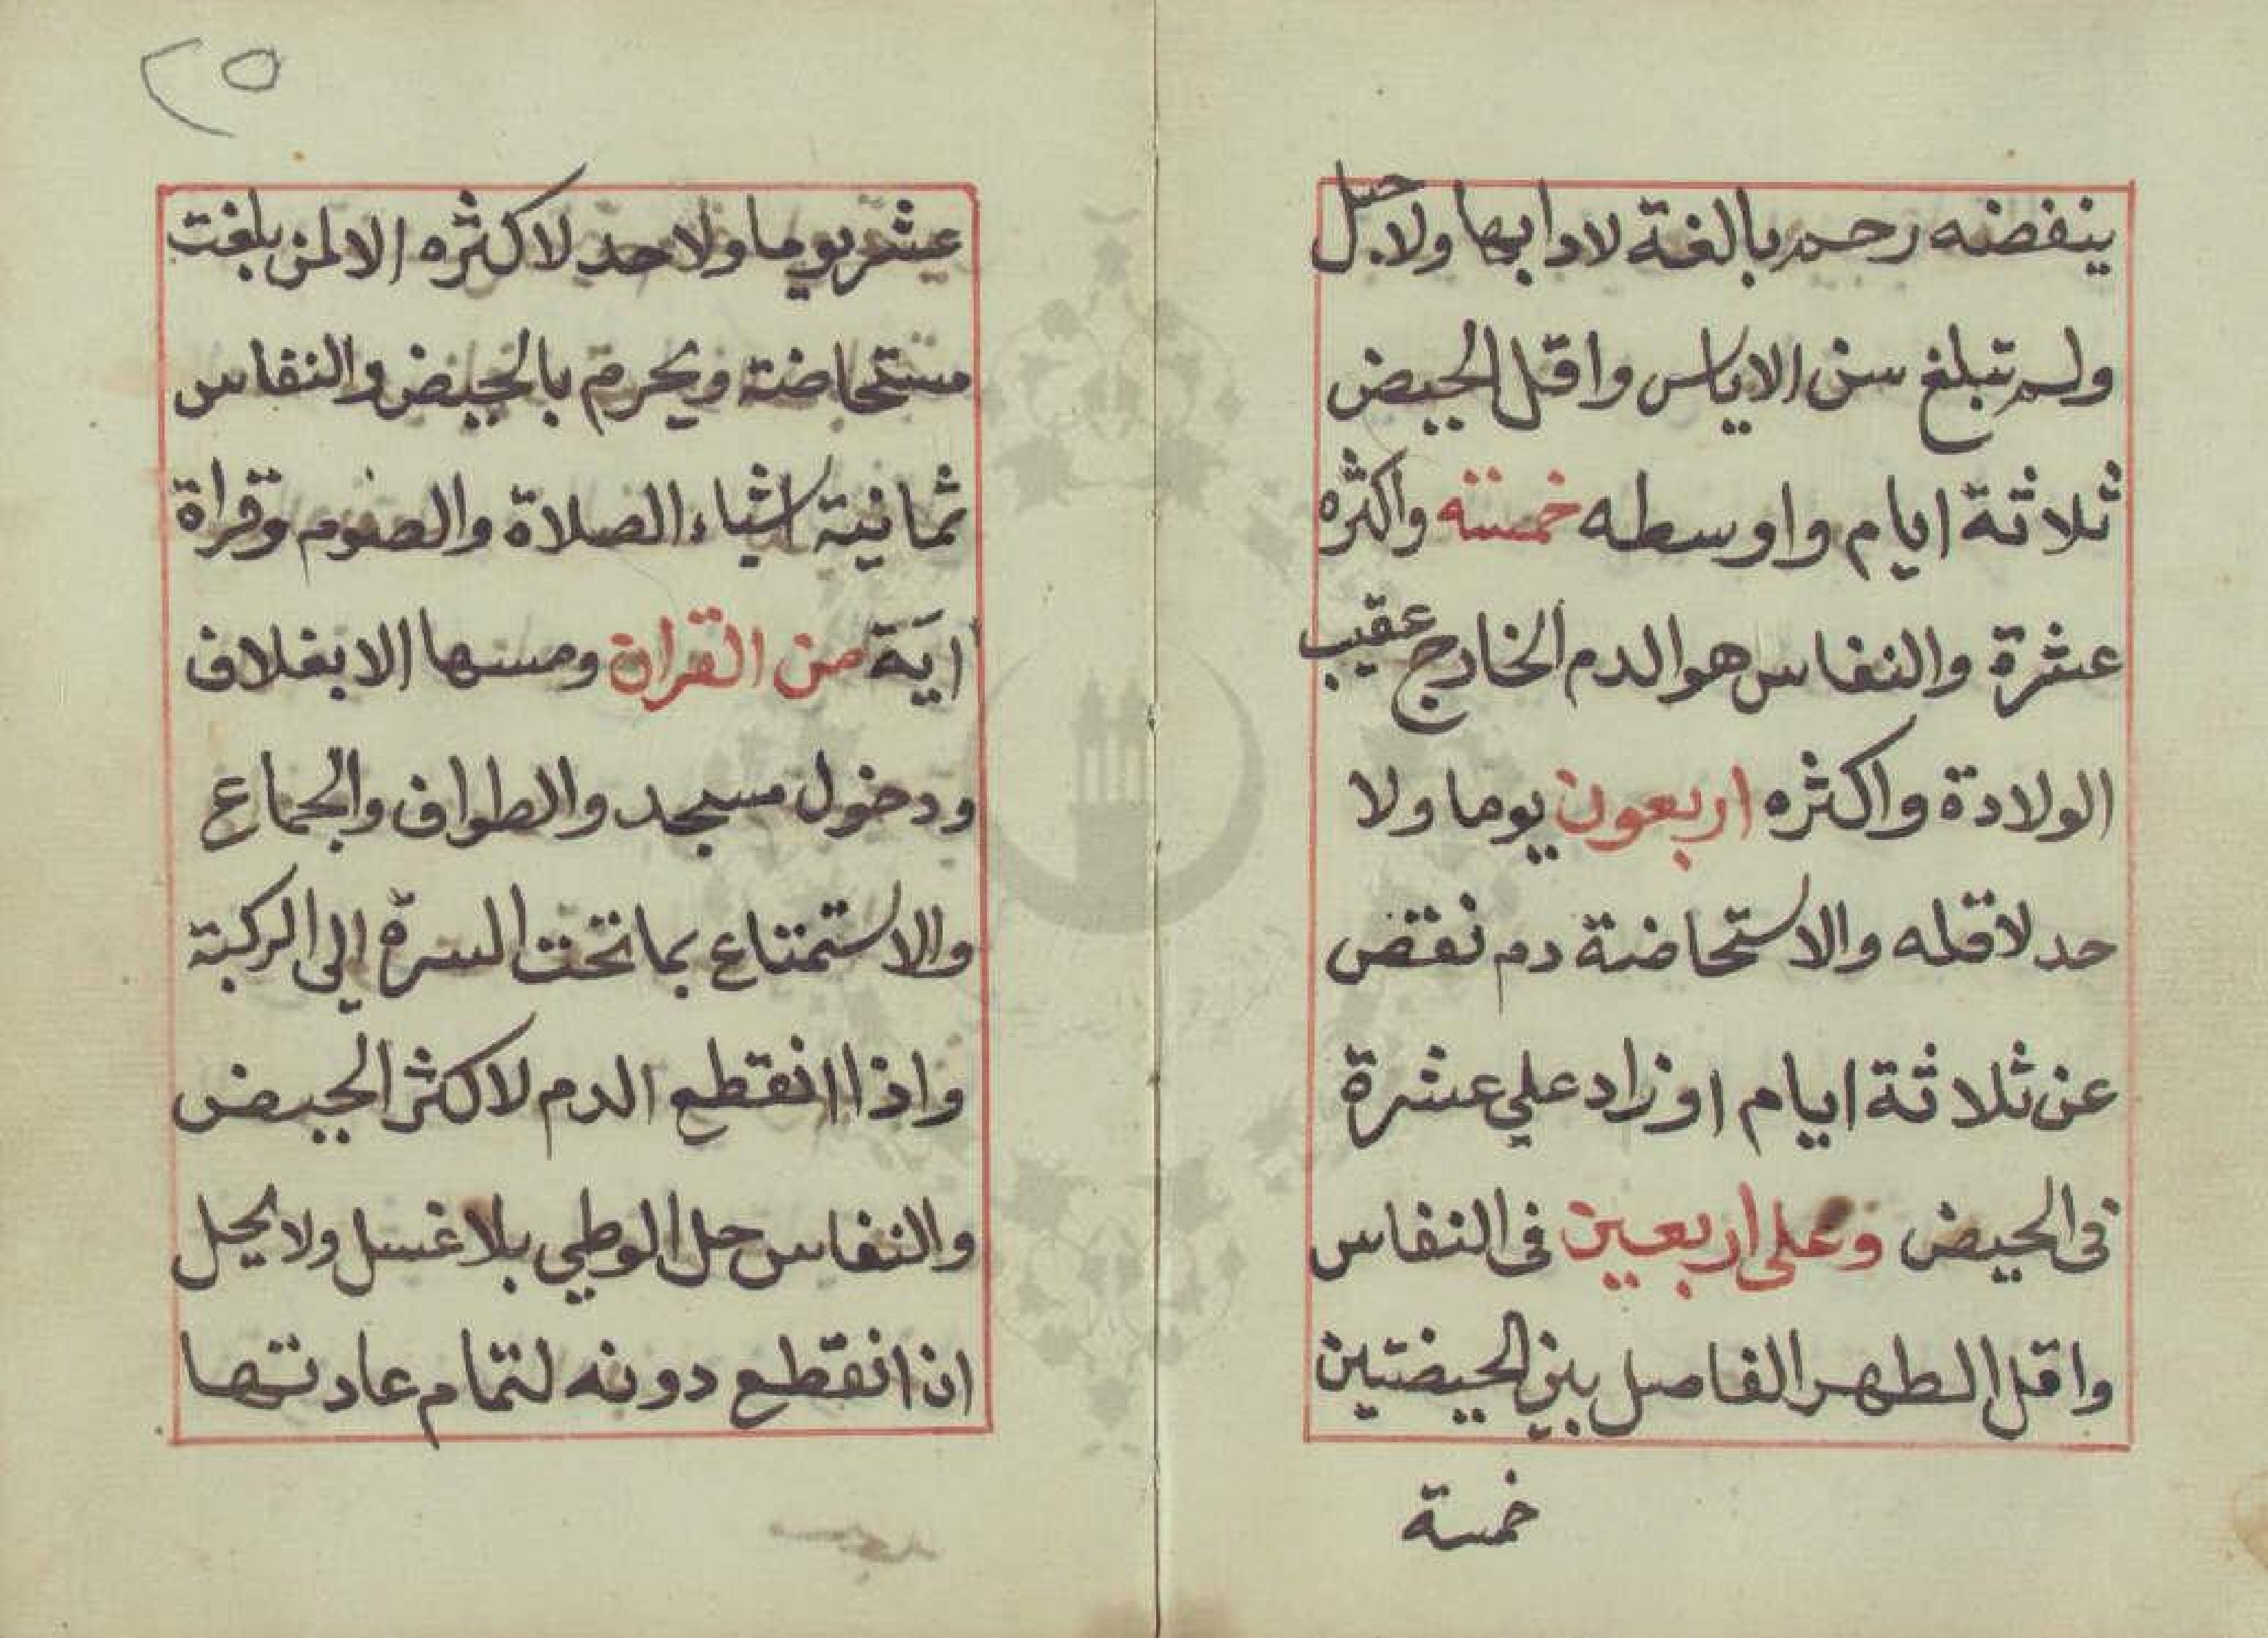 ينفضه رحم بالغة لادابها ولا حبل
ولم تبلغ سن الاياس واقل الحيض
ثلاثة ايام واوسطه خمسة واكثره
عشرة والنفاس هو الدم الخارج عقيب
الولادة واكثره اربعون يوما ولا
حد لاقله والاستحاضة دم نقص
عن ثلاثة ايام او زاد علي عشرة
فى الحيض وعلى اربعين فى النفاس
واقل الطهر الفاصل بين الحيضتين
خمسة
٢٥
عشر يوما ولا حد لاكثره الا لمن بلغت
مستحاضة ويحرم بالحيض والنفاس
ثمانية اشياء الصلاة والصوم وقراة
اية من القران ومسها الا بغلاف
ودخول مسجد والطواف والجماع
والاستمتاع بما تحت السرة الى الركبة
واذا انقطع الدم لاكثر الحيض
والنفاس حل الوطي بلا غسل ولا يحل
ان انقطع دونه لتمام عادتها